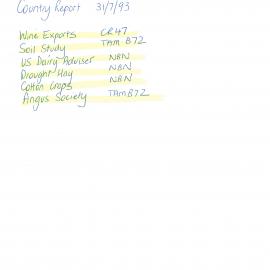 Country Report 31/7/93
Wine Exports CR47
Soil Study TAM B72
US Dairy Adviser NBN
Drought Hay NBN
Cotton Crops NBN
Angus Society TAM B72